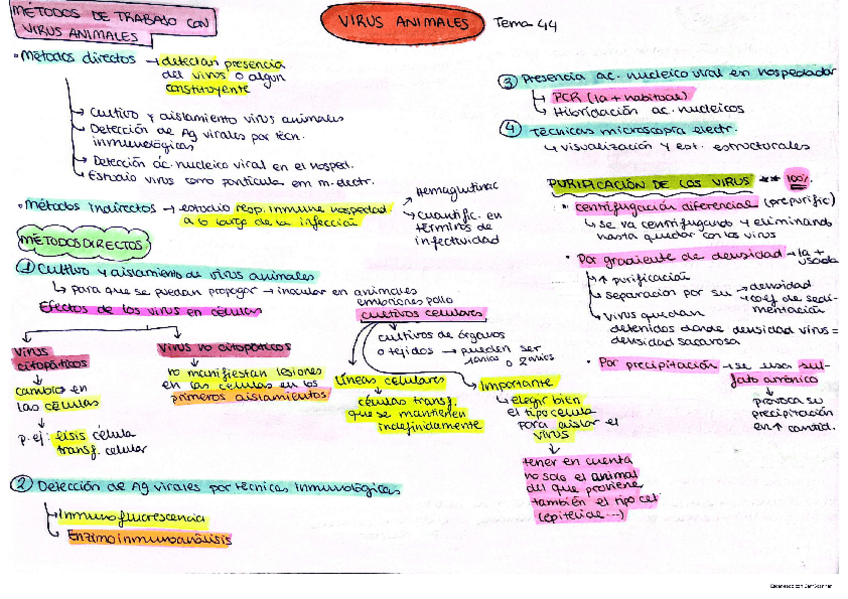 MÉTODOS DE TRABAJO CON
VIRUS ANIMALES
VIRUS ANIMALES
Tema 44
• Métodos directos → detectan presencia
del virus o algún
constituyente
→ Cultivo y aislamiento virus animales
→ Detección de Ag virales por técn.
inmunológicas
→ Detección ác. nucleico viral en el hosped.
→ Estudio virus como partícula em m. electr.
• Métodos indirectos → estudio resp. inmune hospedad
a lo largo de la infección
Hemaglutinac
cuantific. en
términos de
infectividad
MÉTODOS DIRECTOS
① Cultivo y aislamiento de virus animales
↳ para que se puedan propagar → inocular en animales
embriones pollo
cultivos celulares
Efectos de los virus en células
Virus
citopáticos
↓
cambios en
las células
↓
p. ej: lisis célula
transf. celular
Virus no citopáticos
↓
no manifiestan lesiones
en las células en los
primeros aislamientos
cultivos de órganos
o tejidos → pueden ser
1arios o 2arios
Líneas celulares
↓
células transf.
que se mantienen
indefinidamente
Importante
↳ elegir bien
el tipo célula
para aislar el
virus
↓
tener en cuenta
no solo el animal
del que proviene
también el tipo cel
(epitelide ...)
② Detección de Ag virales por técnicas inmunológicas
→ Inmunofluorescencia
→ Enzimoinmunoanálisis
③ Presencia ac. nucleico viral en hospedador
→ PCR (la + habitual)
→ Hibridación ac. nucleicos
④ Técnicas microscopía electr.
↳ visualización y est. estructurales
PURIFICACIÓN DE LOS VIRUS ** 100%
• centrifugación diferencial (prepurific)
↳ se va centrifugando y eliminando
hasta quedar con los virus
• Por gradiente de densidad → la +
usada
→ ↑ purificación
→ separación por su → densidad
→ coef de sedi-
mentación
→ virus quedan
detenidos donde densidad virus =
densidad sacarosa
• Por precipitación → se usa sul-
fato amónico
↓
provoca su
precipitación
en ↑ cantid.
Escaneado con CamScanner